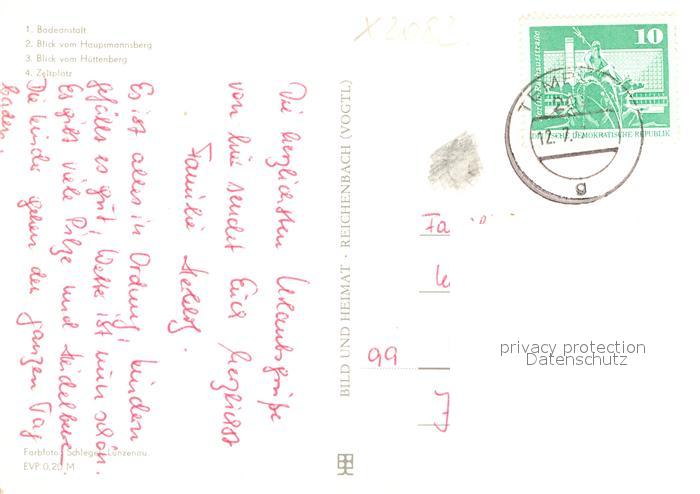 1. Badeanstalt
2. Blick vom Hauptmannsberg
3. Blick vom Hüttenberg
4. Zeltplatz
X2082
Die herzlichsten Urlaubsgrüße
von hier sendet Euch herzlichst
Familie
Es ist alles in Ordnung, Kindern
gefällt es gut, Wetter ist nun schön.
Es gibt viele Pilze und Heidelbeeren.
Die Kinder gehen den ganzen Tag
baden.
Farbfoto: Schlegel, Lunzenau
EVP 0,20 M
BILD UND HEIMAT · REICHENBACH (VOGTL)
10
DEUTSCHE DEMOKRATISCHE REPUBLIK
12.7.
g
Fa
99
privacy protection
Datenschutz